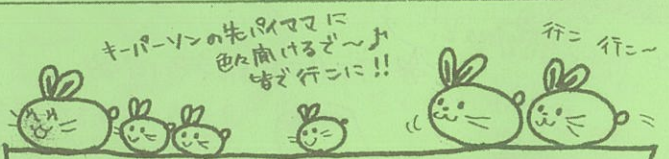 キーパーソンの先パイママに
色々聞けるで〜♪
皆で行こに!!
行こ 行こ〜